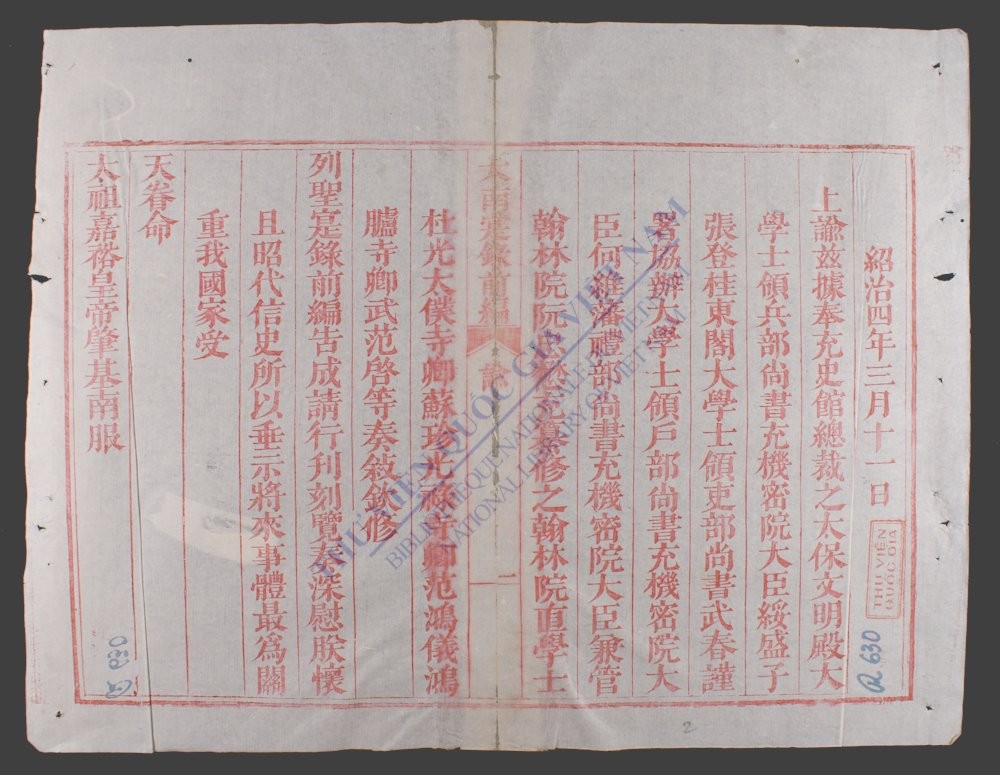 紹治四年三月十一日
上諭茲據奉充史館總裁之太保文明殿大
學士領兵部尚書充機密院大臣綏盛子
張登桂東閣大學士領吏部尚書武春謹
署協辦大學士領戶部尚書充機密院大
臣何維藩禮部尚書充機密院大臣兼管
翰林院阮忠懋充纂修之翰林院直學士
大南寔錄前編 諭 一
杜光太僕寺卿蘇珍光祿寺卿范鴻儀鴻
臚寺卿武范啓等奏敘欽修
列聖寔錄前編告成請行刊刻覽奏深慰朕懷
且昭代信史所以垂示將來事體最爲關
重我國家受
天眷命
太祖嘉裕皇帝肇基南服
THƯ VIỆN
QUỐC GIA
R.630
R.630
2
THƯ VIỆN QUỐC GIA VIỆT NAM
BIBLIOTHEQUE NATIONALE DU VIETNAM
NATIONAL LIBRARY OF VIETNAM